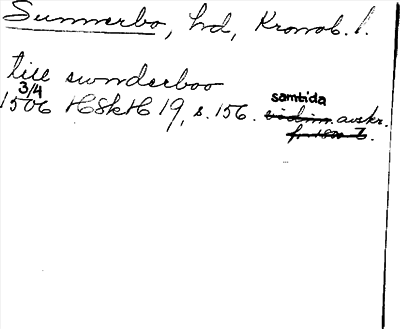 Sunnerbo, hd, Kronob. l.
till swnderboo
1506 3/4 HSkH 19, s. 156. samtida vidim. avskr.
f. 1800 t.